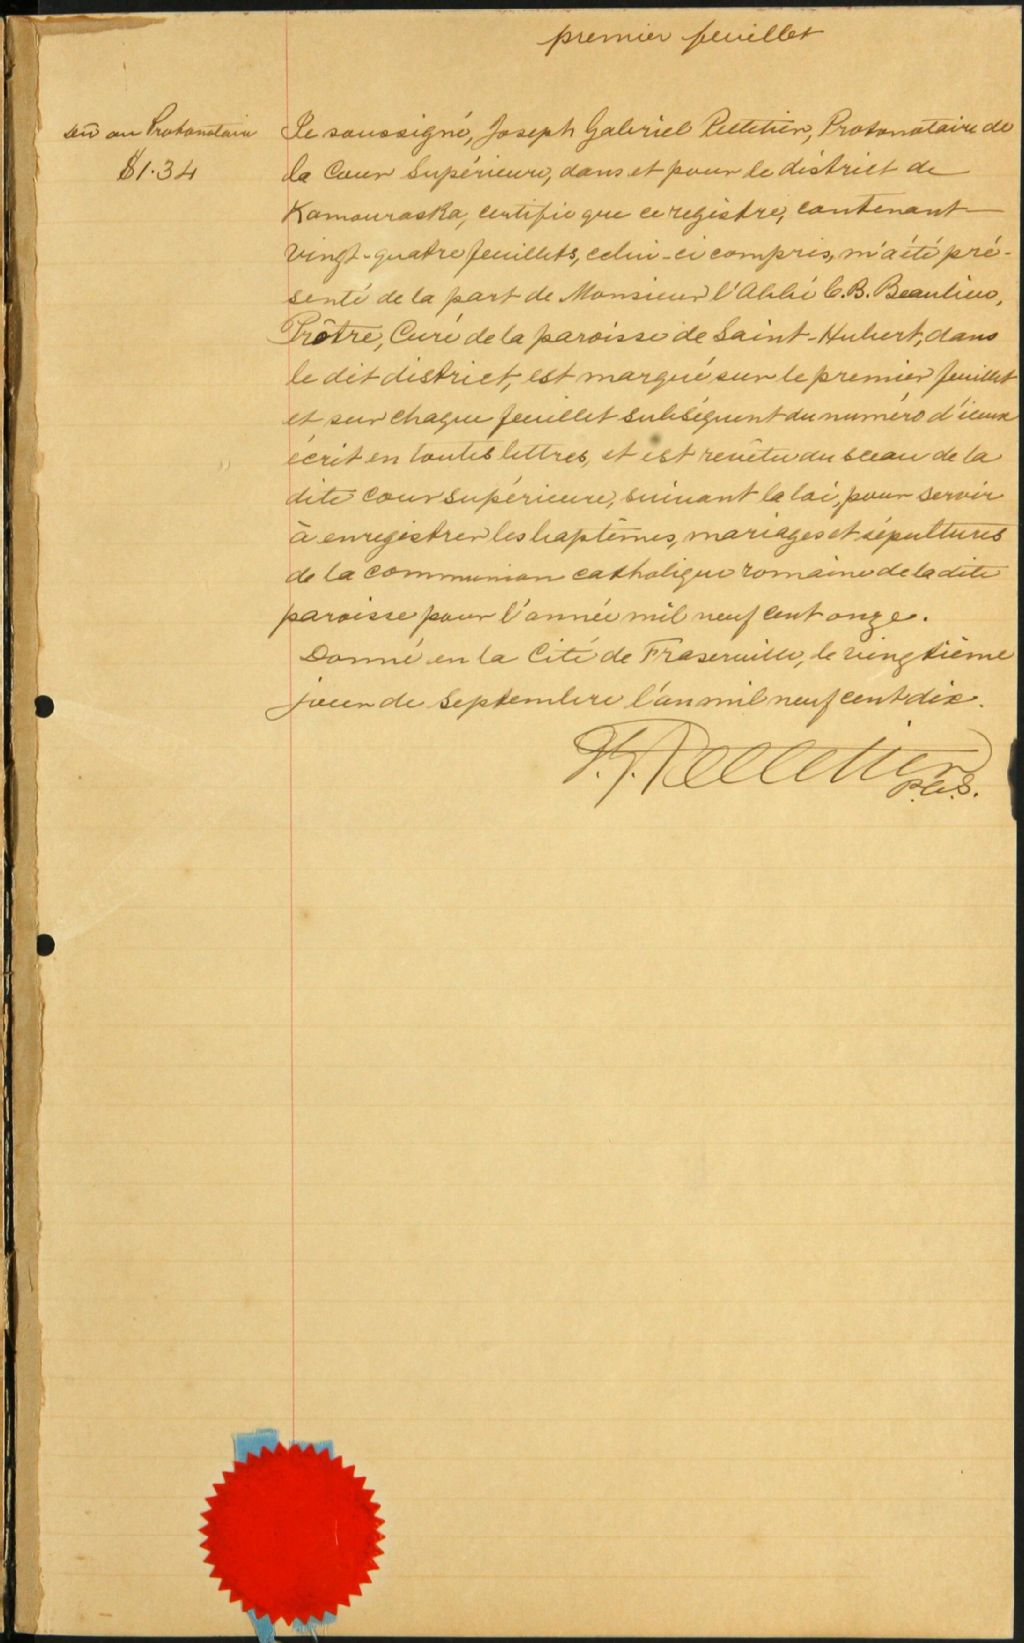 premier feuillet
dû au Protonotaire
$1.34
Je soussigné, Joseph Gabriel Pelletier, Protonotaire de
la Cour Supérieure, dans et pour le district de
Kamouraska, certifie que ce registre, contenant
vingt-quatre feuillets, celui-ci compris, m'a été pré-
senté de la part de Monsieur l'Abbé C. B. Beaulieu,
Prêtre, Curé de la paroisse de Saint-Hubert, dans
le dit district, est marqué sur le premier feuillet
et sur chaque feuillet subséquent du numéro d'iceux
écrit en toutes lettres, et est revêtu du sceau de la
dite Cour Supérieure, suivant la loi, pour servir
à enregistrer les baptêmes, mariages et sépultures
de la communion catholique romaine de la dite
paroisse pour l'année mil neuf cent onze.
Donné en la Cité de Fraserville, le vingtième
jour de Septembre l'an mil neuf cent dix.
J. G. Pelletier
P.C.S.